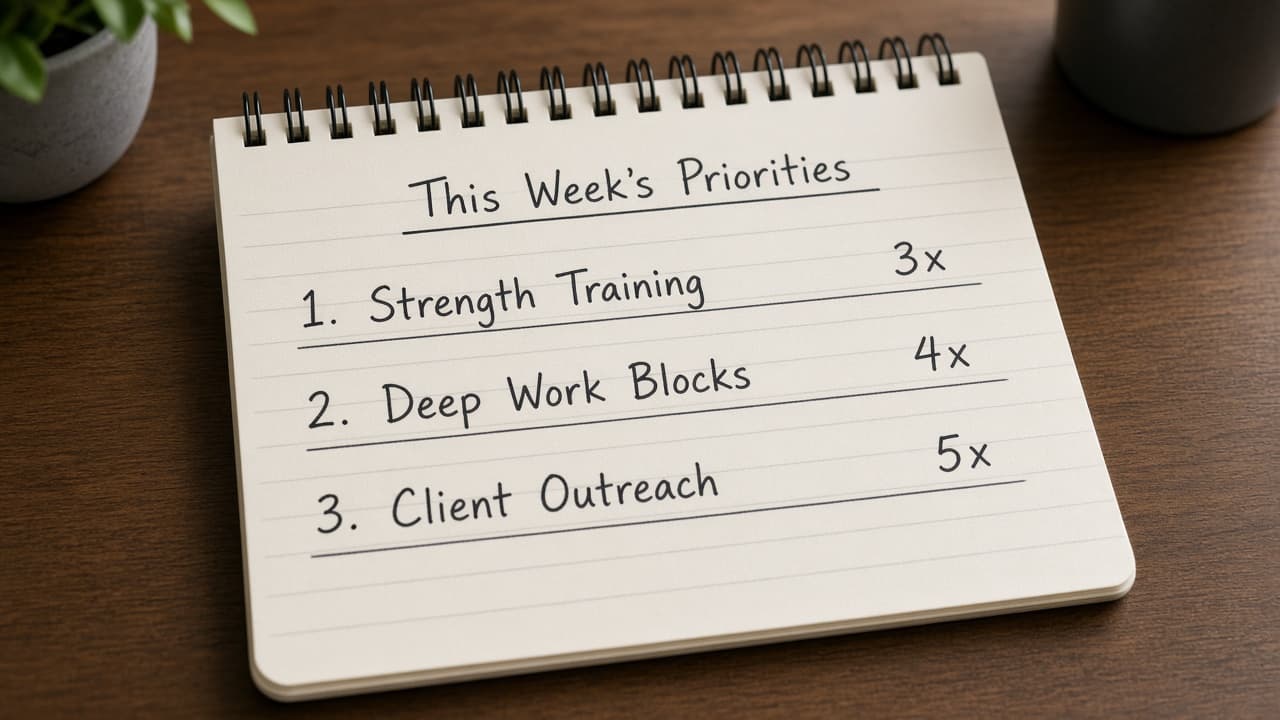 This Week's Priorities
1. Strength Training 3x
2. Deep Work Blocks 4x
3. Client Outreach 5x